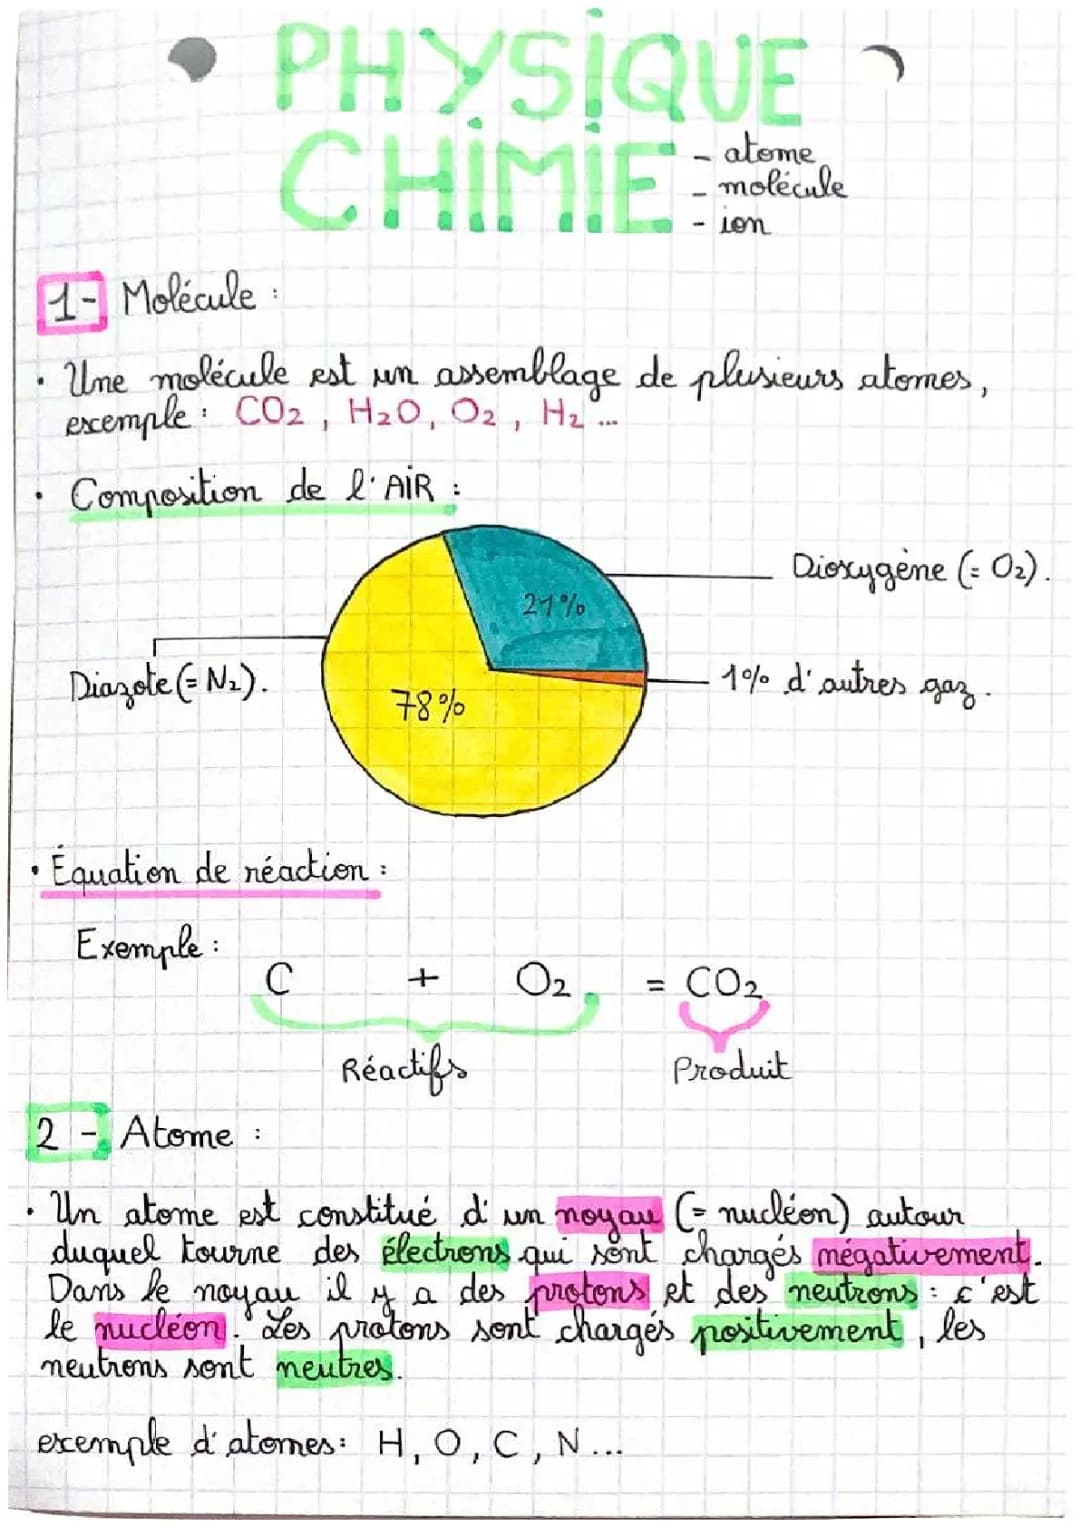 PHYSIQUE
CHIMIE
- atome
- molécule
- ion
1- Molécule :
• Une molécule est un assemblage de plusieurs atomes,
exemple : CO2, H2O, O2, H2 ...
• Composition de l'AIR :
Dioxygène (= O2).
21%
Diazote (= N2).
78%
1% d'autres gaz.
• Équation de réaction :
Exemple :
C + O2 = CO2
Réactifs Produit
2 - Atome :
• Un atome est constitué d'un noyau (= nucléon) autour
duquel tourne des électrons qui sont chargés négativement.
Dans le noyau il y a des protons et des neutrons : c'est
le nucléon. Les protons sont chargés positivement, les
neutrons sont neutres.
exemple d'atomes : H, O, C, N ...